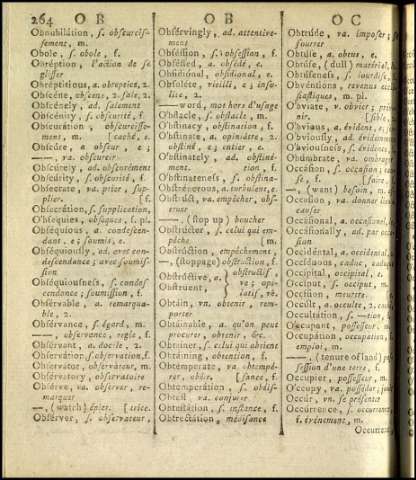 264 O B
O B
O C
Obnubilation, s. obscurcis-
sement, m.
Obole, s. obole, f.
Obreption, l'action de se
glisser
Obreptitious, a. obreptice, 2.
Obscène, obscene, 2. sale, 2.
Obscénely, ad. salement
Obscénity, s. obscurité, f.
Obscuration, obscurcisse-
ment, m. [caché, e.
Obscúre, a. obscur, e;
——, va. obscurcir
Obscúrely, ad. obscurément
Obscúrity, s. obscurité, f.
Obsecrate, va. prier, sup-
plier. [f.
Obsecrátion, s. supplication,
O'bsequies, obsèques, f. pl.
Obséquious, a. condescen-
dant, e; soumis, e.
Obséquiously, ad. avec con-
descendance; avec soumis-
sion
Obséquiousness, s. condes-
cendance; soumission, f.
Obsérvable, a. remarqua-
ble, 2.
Obsérvance, s. égard, m.
——, observance, regle, f.
Obsérvant, a. docile, 2.
Observátion, s. observation, f.
Observátor, observateur, m.
Obsérvatory, observatoire
Obsérve, va. observer, re-
marquer
—, (watch) épier. [trice.
Obsérver, s. observateur,
Obsérvingly, ad. attentive-
ment
Obséssion, s. obsession, f.
Obséssed, a. obsédé, e.
Obsídional, obsidional, e.
Obsolete, vieilli, e; inu-
sité, 2.
——word, mot hors d'usage
O'bstacle, s. obstacle, m.
O'bstinacy, obstination, f.
O'bstinate, a. opiniâtre, 2.
obstiné, e; entier, e.
O'bstinately, ad. obstiné-
ment. tion, f.
O'bstinateness, s. obstina-
Obstréperous, a. turbulent, e.
Obstrúct, va. empêcher, obs-
truer
——, (stop up) boucher
Obstrúcter, s. celui qui em-
pêche [m.
Obstrúction, empêchement,
—, (stoppage) obstruction, f.
Obstrúctive, a. } obstructif
Obstruent, } ve; opi-
latif, ve.
Obtáin, vn. obtenir, rem-
porter
Obtáinable, a. qu'on peut
procurer, obtenir, &c.
Obtáiner, s. celui qui obtient
Obtáining, obtention, f.
Obtémperate, va. obtempé-
rer, obéir. [sance, f.
Obtemperátion, s. obéis-
Obtést, va. conjurer
Obtestátion, s. instance, f.
Obtrectátion, médisance
Obtrúde, va. imposer; se
fourrer
Obtúse, a. obtus, e.
Obtúse, (dull) matériel,
Obtúseness, s. lourdise, f.
Obvéntions, revenus ecclé-
siastiques, m. pl.
O'bviate, v. obvier; pré-
nir. [sible,
O'bvious, a. évident, e;
O'bviously, ad. évidemment
O'bviousness, s. évidence, f.
Obúmbrate, va. ombrager
Occásion, s. occasion;
se, f. [faire,
—, (want) besoin, m.
Occásion, va. donner lieu,
causer
Occásional, a. occasionel,
Occásionally, ad. par occa-
sion
Occidéntal, a. occidental,
Occíduous, caduc, caduque
Occípital, occipital, e.
Occiput, s. occiput, m.
Occísion, meurtre
Occúlt, a. occulte, 2. caché
Occultátion, s. —tion,
O'ccupant, possesseur, m.
Occupátion, occupation,
emploi, m.
——, (tenure of land) pos-
session d'une terre, f.
O'ccupier, possesseur, m.
O'ccupy, va. posséder,
Occúr, vn. se présenter
Occúrrence, s. occurrence
f. événement, m.
Occurrent